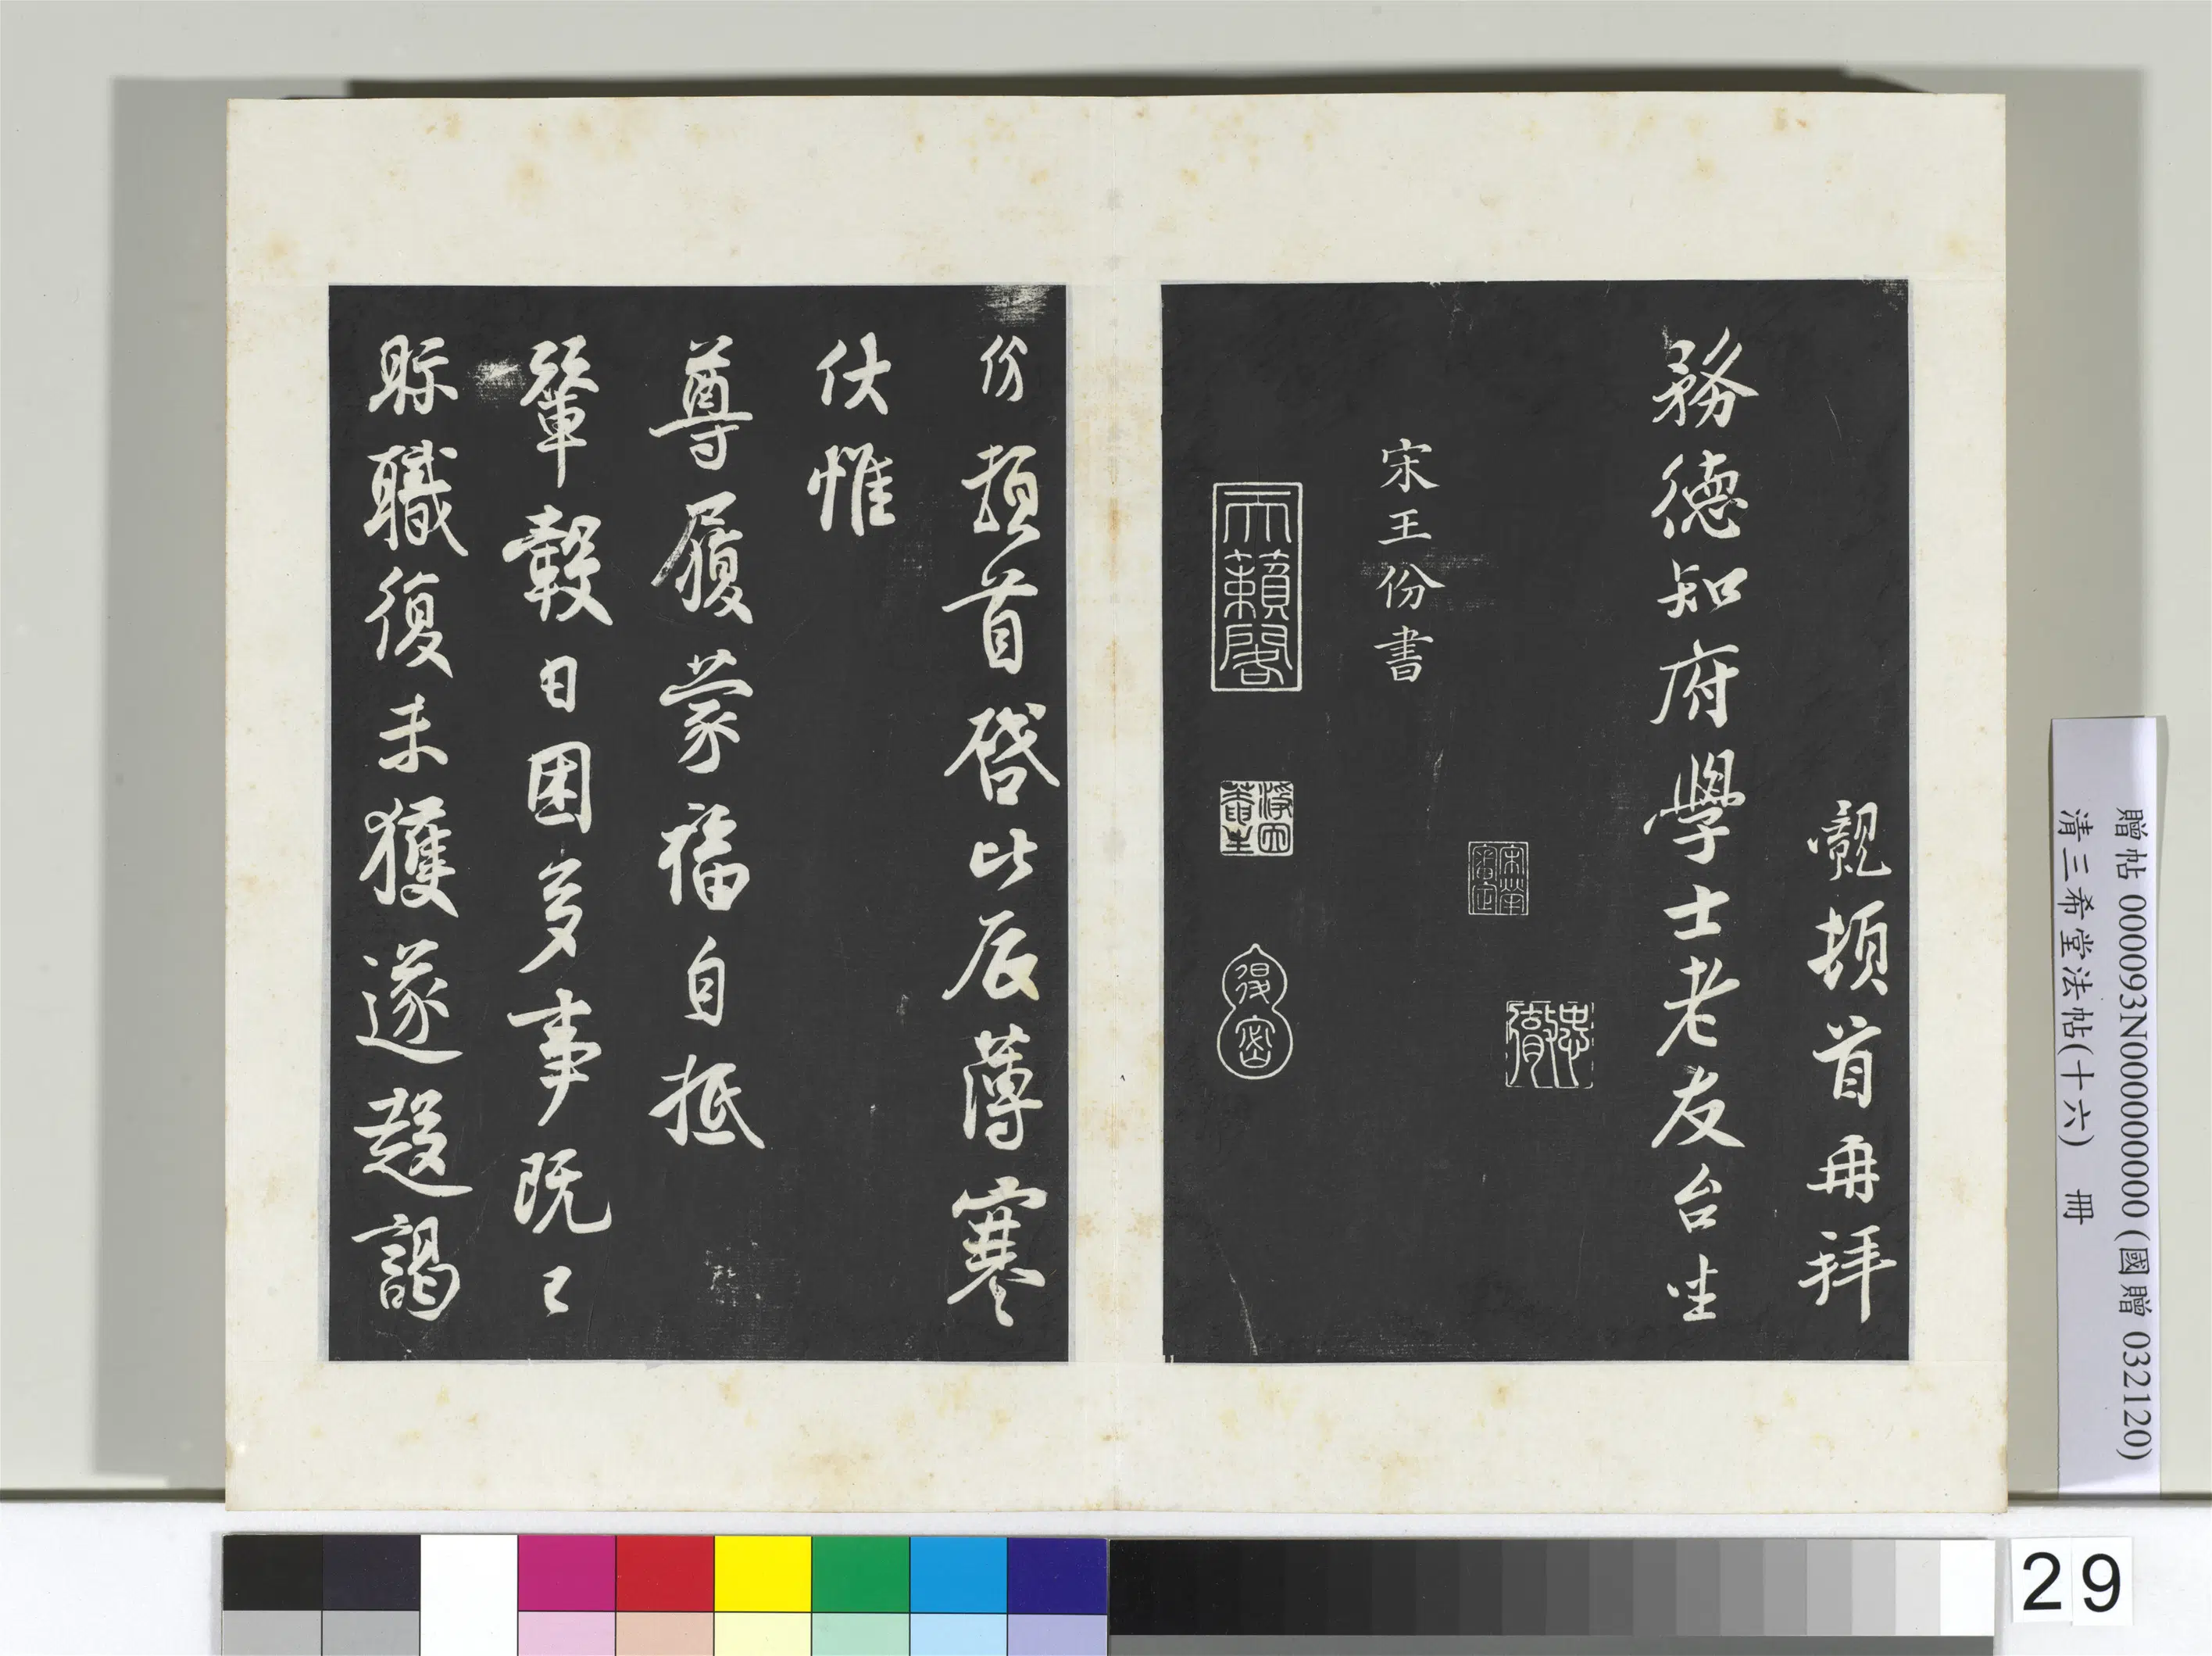 觀頓首再拜
務德知府學士老友台坐
宋王份書
天籟閣
份頓首啓比辰薄寒
伏惟
尊履蒙福自抵
輦轂日困多事既已
眎職復未獲遂趍謁
贈帖 000093N000000000 (國贈 032120)
清三希堂法帖(十六) 冊
29